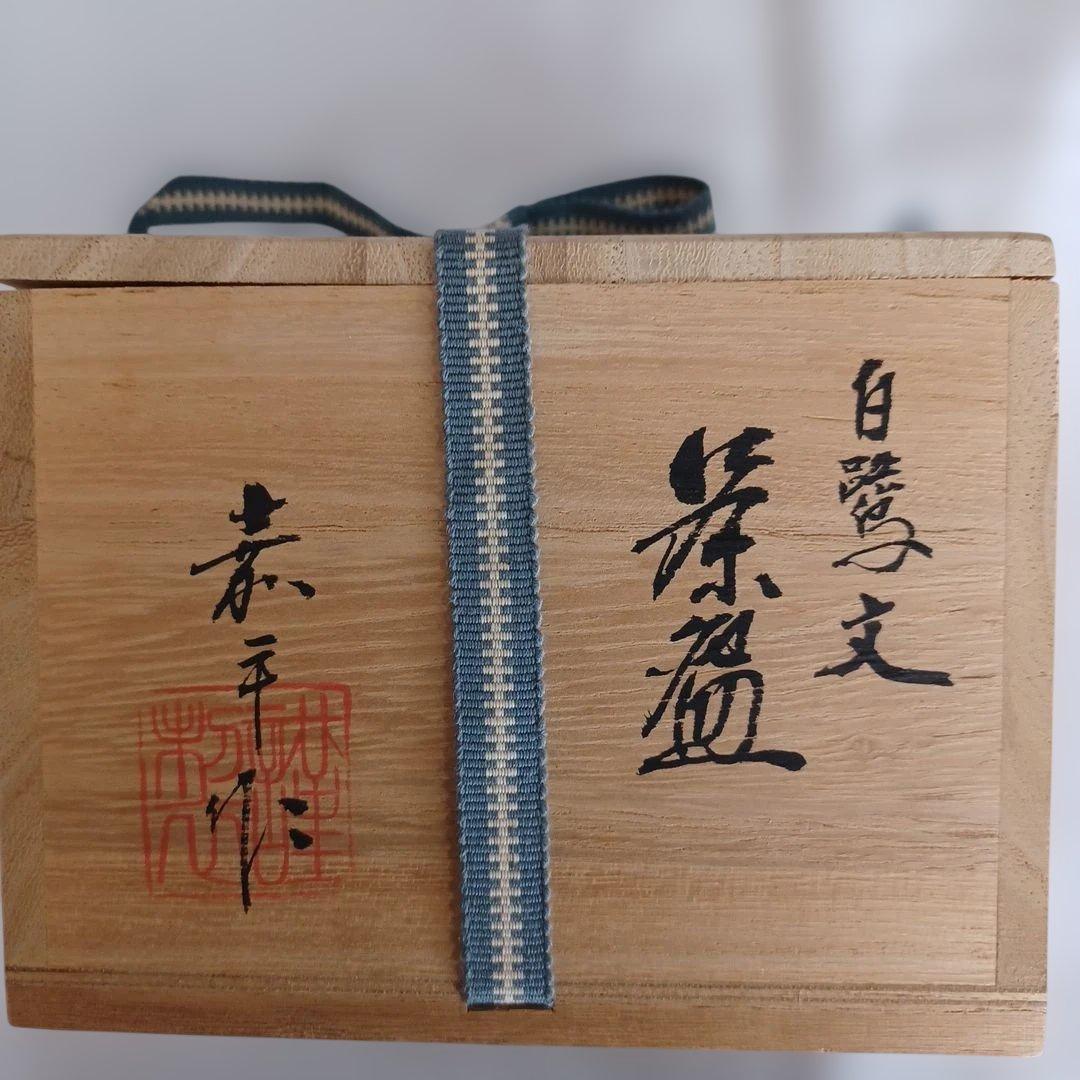 白鷺文
茶盌
嘉平作